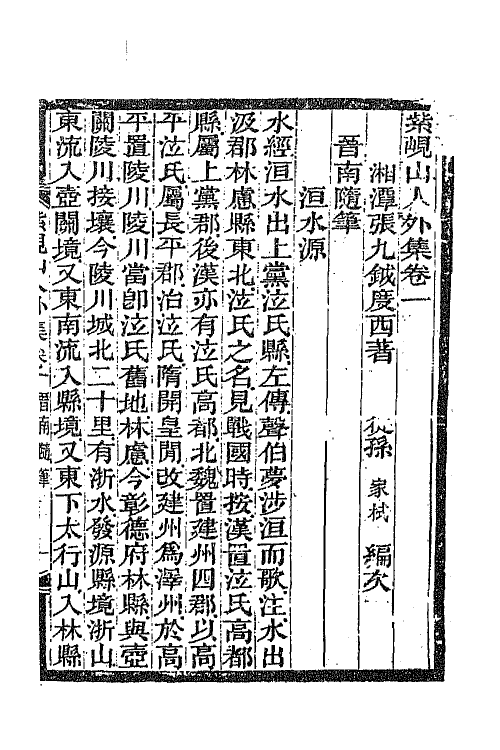 紫峴山人外集卷一
湘潭張九鉞度西著　從孫家栻編次
晉南隨筆
洹水源
水經洹水出上黨泫氏縣左傳聲伯夢涉洹而歌注水出
汲郡林慮縣東北泫氏之名見戰國時按漢置泫氏高都
縣屬上黨郡後漢亦有泫氏高都北魏置建州四郡以高
平泫氏屬長平郡治泫氏隋開皇間改建州爲澤州於高
平置陵川陵川當卽泫氏舊地林慮今彰德府林縣與壺
關陵川接壤今陵川城北二十里有浙水發源縣境浙山
東流入壺關境又東南流入縣境又東下太行山入林縣
紫峴山人外集卷一　晉南隨筆　一